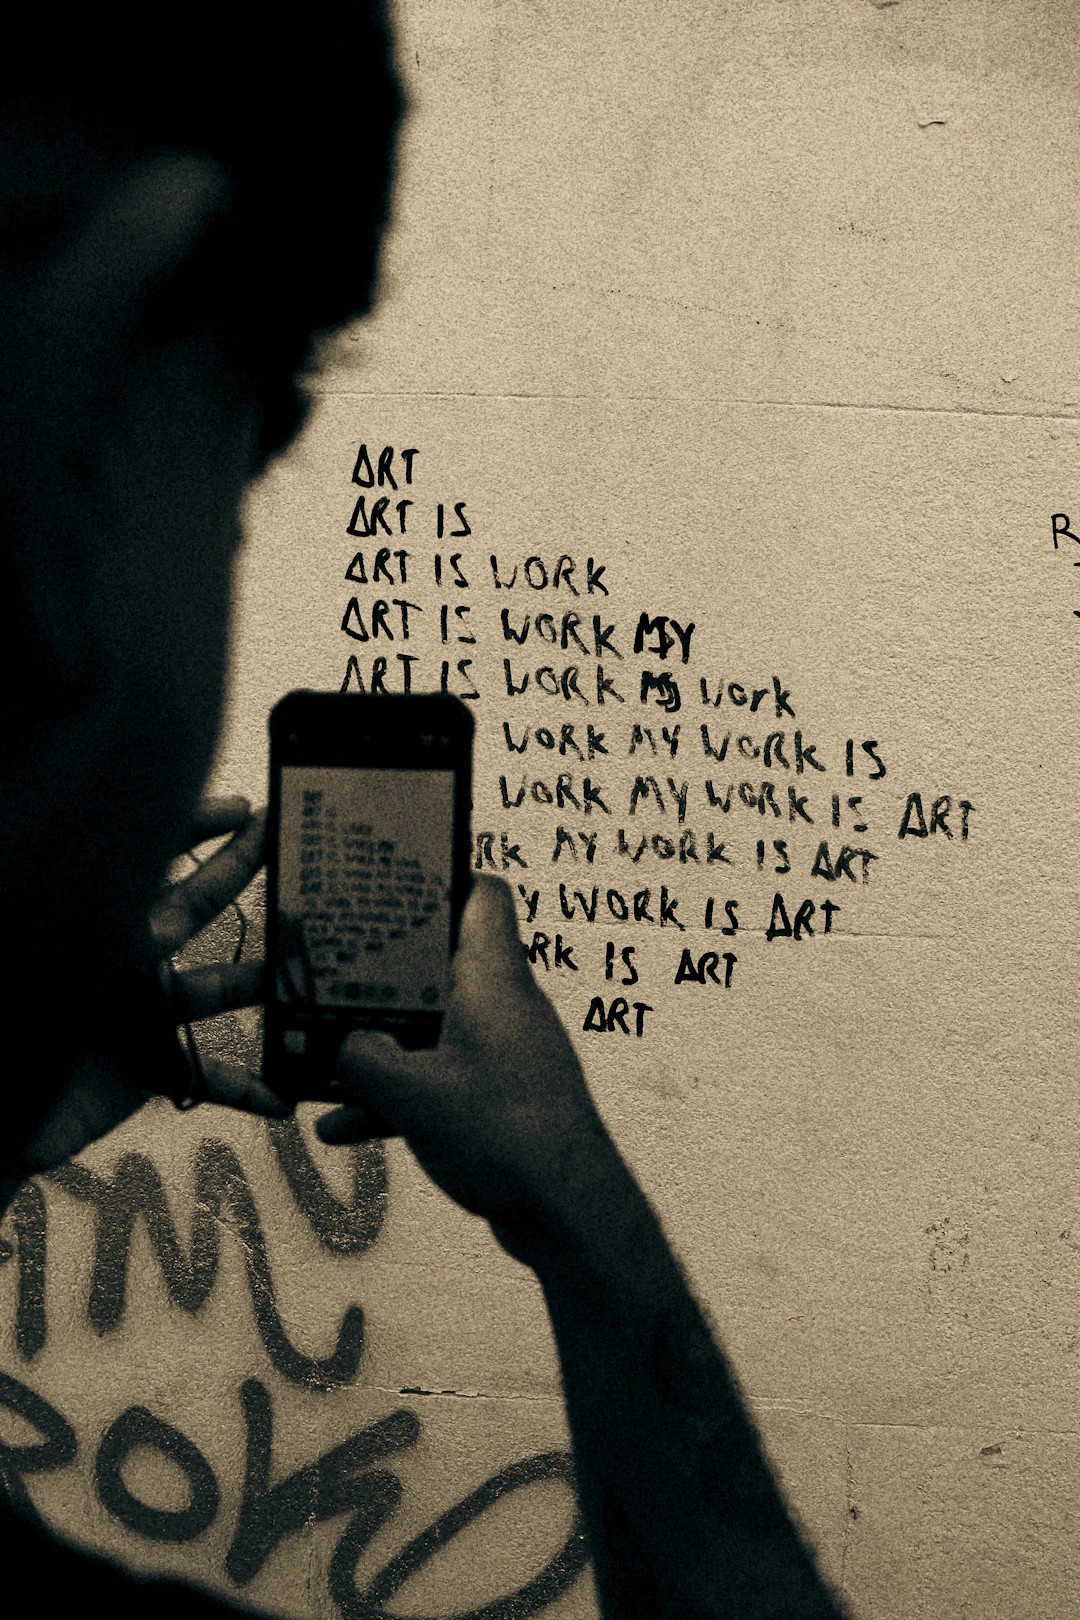 ART
ART IS
ART IS WORK
ART IS WORK MY
ART IS WORK MY Work
WORK MY WORK IS
WORK MY WORK IS ART
RK MY WORK IS ART
Y WORK IS ART
RK IS ART
ART
R